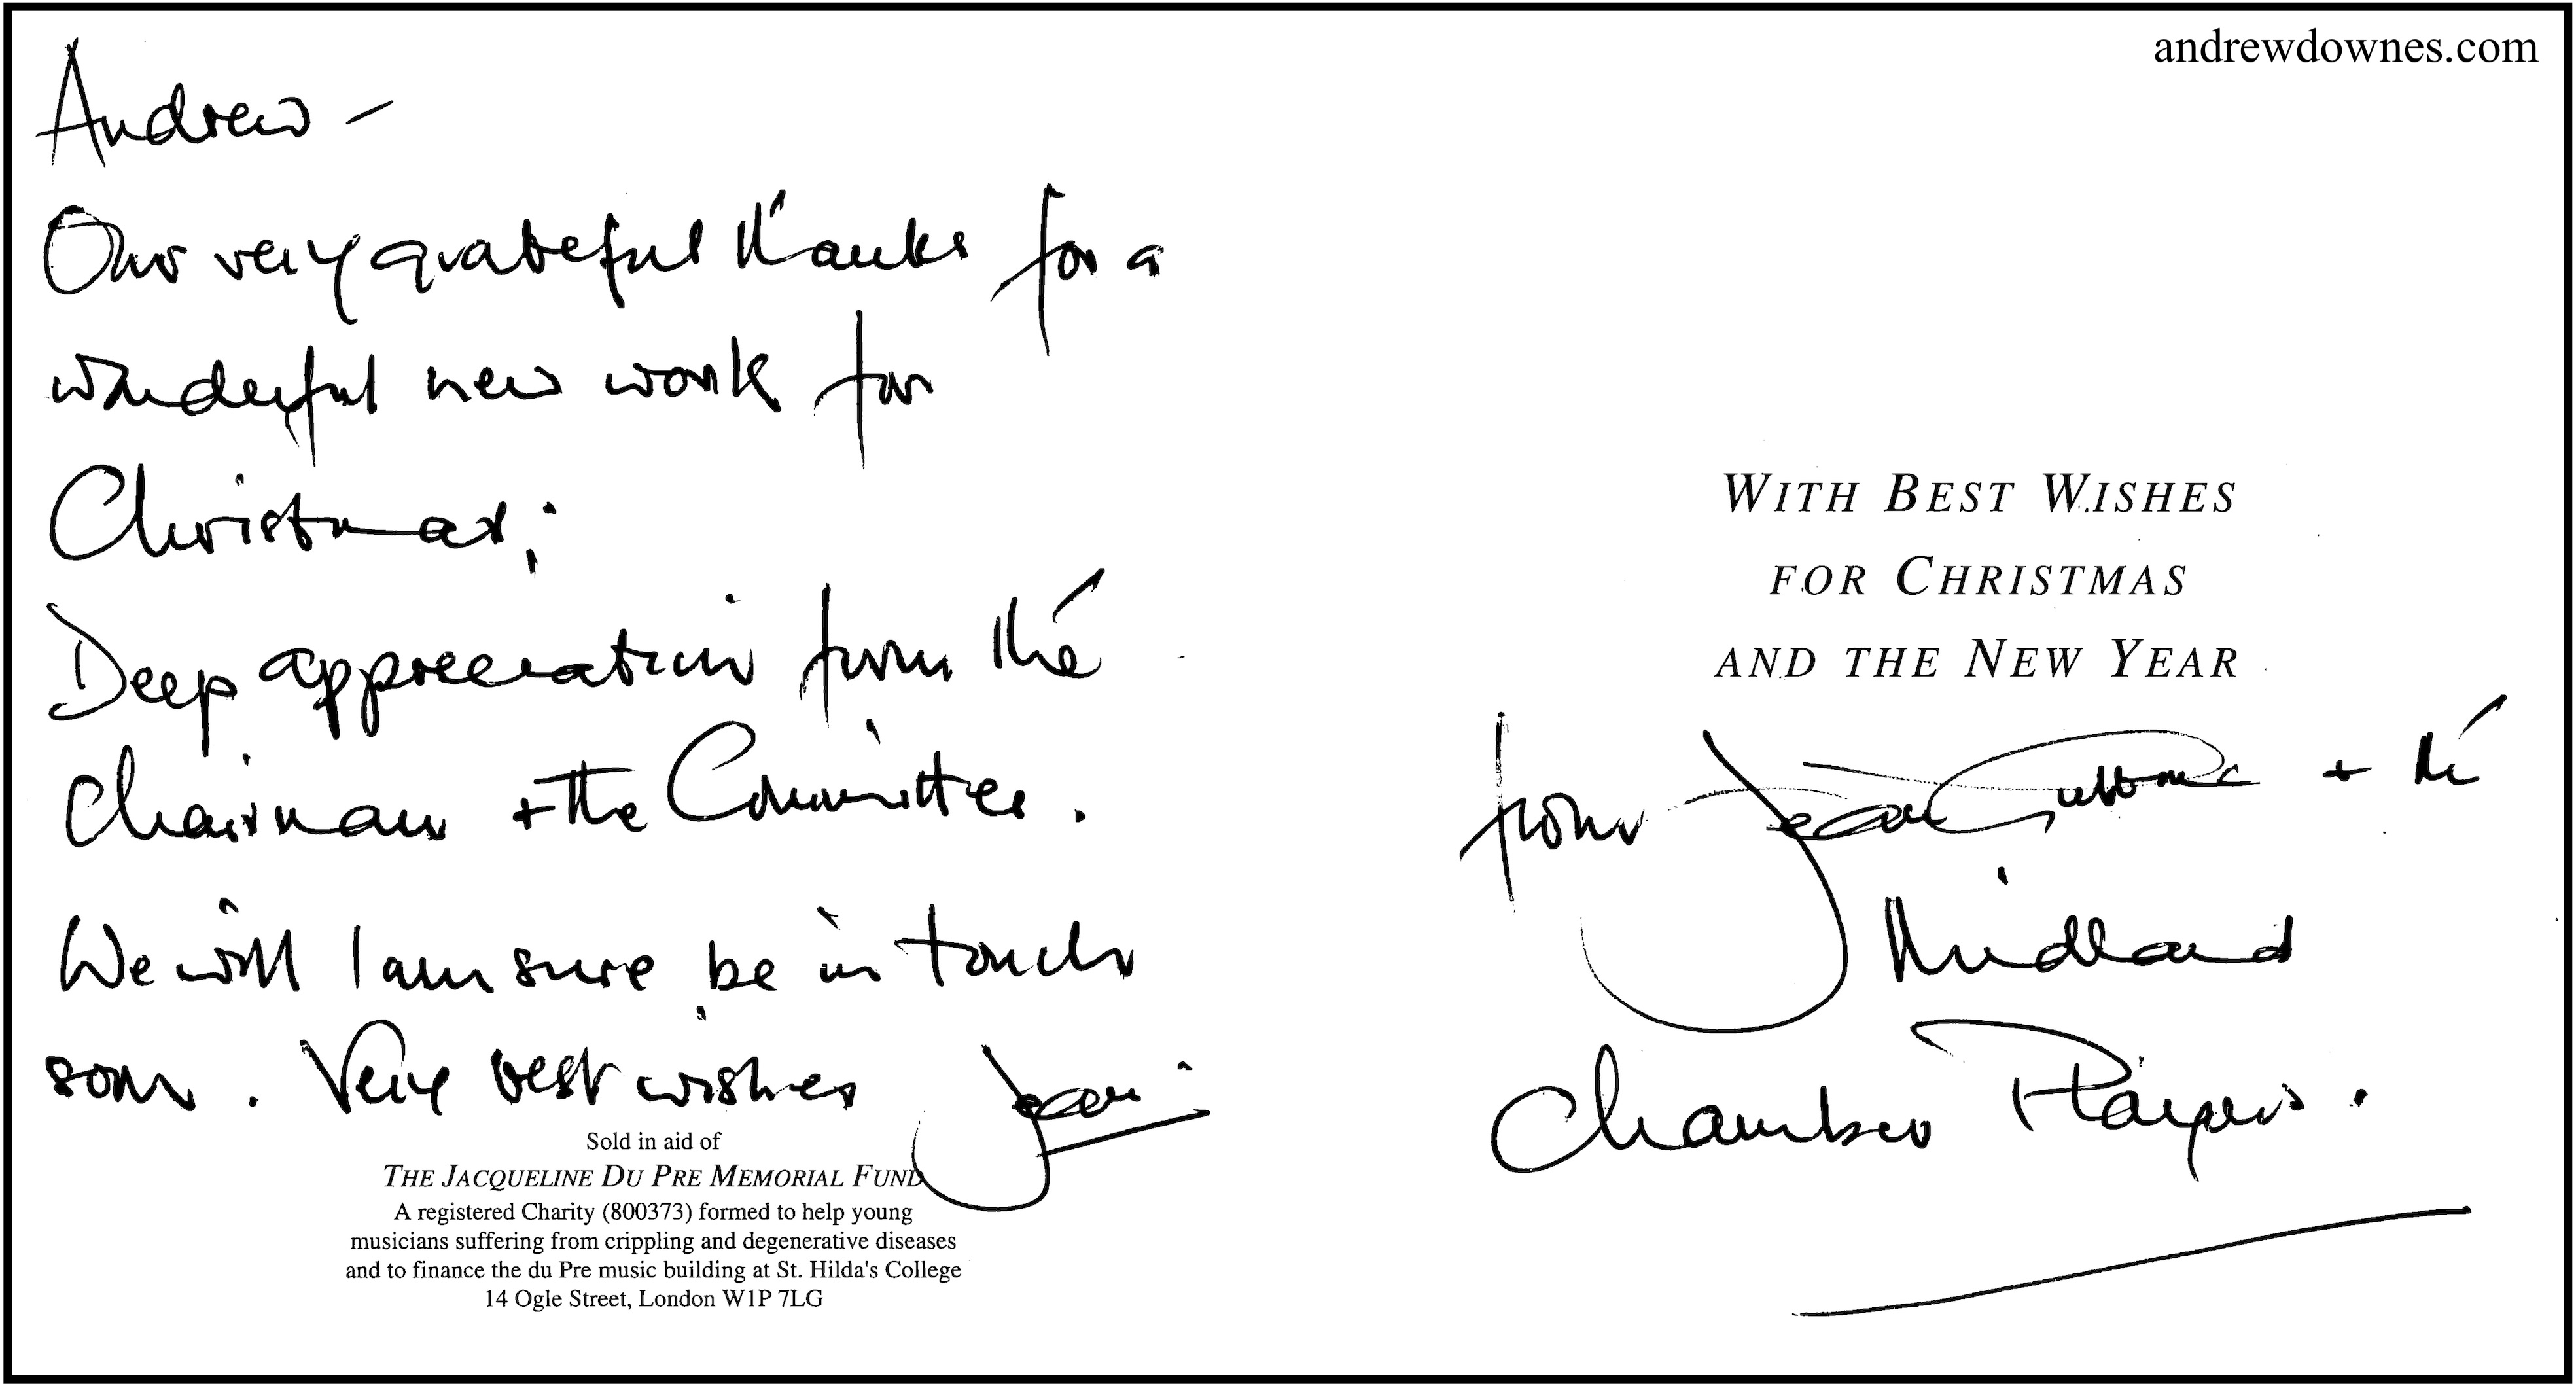 andrewdownes.com
Andrew –
Our very grateful thanks for a
wonderful new work for
Christmas;
Deep appreciation from the
Chairman + the Committee.
We will I am sure be in touch
soon. Very best wishes Jean
Sold in aid of
THE JACQUELINE DU PRE MEMORIAL FUND
A registered Charity (800373) formed to help young
musicians suffering from crippling and degenerative diseases
and to finance the du Pre music building at St. Hilda's College
14 Ogle Street, London W1P 7LG
WITH BEST WISHES
FOR CHRISTMAS
AND THE NEW YEAR
from Jean + the
Midland
Chamber Players.